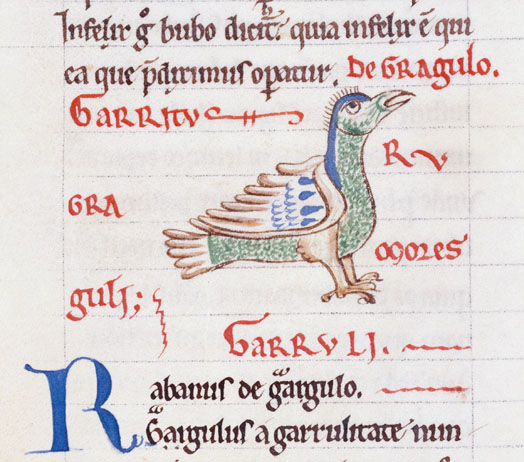 Infelix gͦ bubo dicit᷑. quia infelix ē qui
ea que p̄diximus opatur. De Gragulo.
Garritus
Ru
Gra
mores
guli;
Garruli.
Rabanus de gargulo.
Gargulus a garrulitate nun